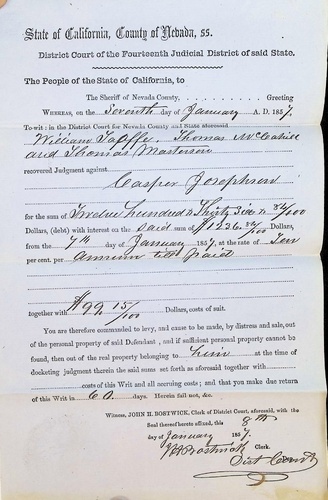 State of California, County of Nevada, ss.
District Court of the Fourteenth Judicial District of said State.
The People of the State of California, to
The Sheriff of Nevada County, Greeting
WHEREAS, on the Seventh day of January A. D. 1857
To wit: in the District Court for Nevada County and State aforesaid
William Taaffe, Thomas McCahill
and Thomas Masterson
recovered Judgment against
Casper Josephson
for the sum of Twelve hundred & Thirty Six & 36/100
Dollars, (debt) with interest on the said sum of $1236 36/100 Dollars,
from the 7th day of January 1857, at the rate of Ten
per cent. per Annum till Paid
together with $99 15/100 Dollars, costs of suit.
You are therefore commanded to levy, and cause to be made, by distress and sale, out
of the personal property of said Defendant, and if sufficient personal property cannot be
found, then out of the real property belonging to him at the time of
docketing judgment therein the said sums set forth as aforesaid together with
costs of this Writ and all accruing costs; and that you make due return
of this Writ in 60 days. Herein fail not, &c.
Witness, JOHN H. BOSTWICK, Clerk of District Court, aforesaid, with the
Seal thereof hereto affixed, this 8th
day of January 1857.
J H Bostwick Clerk.
Dist Court